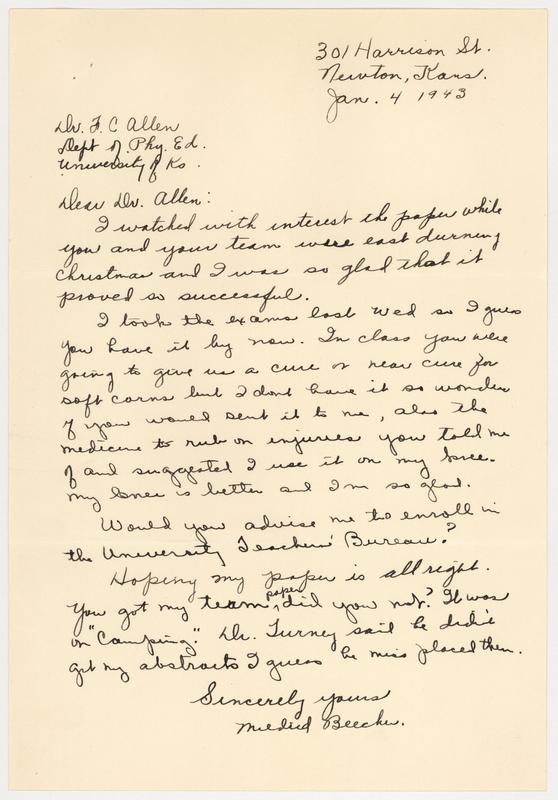 301 Harrison St.
Newton, Kans.
Jan. 4 1943
Dr. F. C Allen
Dept of. Phy. Ed.
University of Ks.
Dear Dr. Allen:
I watched with interest the paper while
you and your team were east durning
Christmas and I was so glad that it
proved so successful.
I took the exams last Wed so I guess
you have it by now. In class you were
going to give us a cure or near cure for
soft corns but I dont have it so wonder
if you would sent it to me, also the
medicine to rub on injuries you told me
of and suggested I use it on my knee.
My knee is better and I'm so glad.
Would you advise me to enroll in
the University Teachers' Bureau?
Hoping my paper is all right.
paper
You got my team, did you not? It was
on "Camping." Dr. Turney said he didn't
get my abstracts I guess he miss placed them.
Sincerely yours
Mildred Beecher.